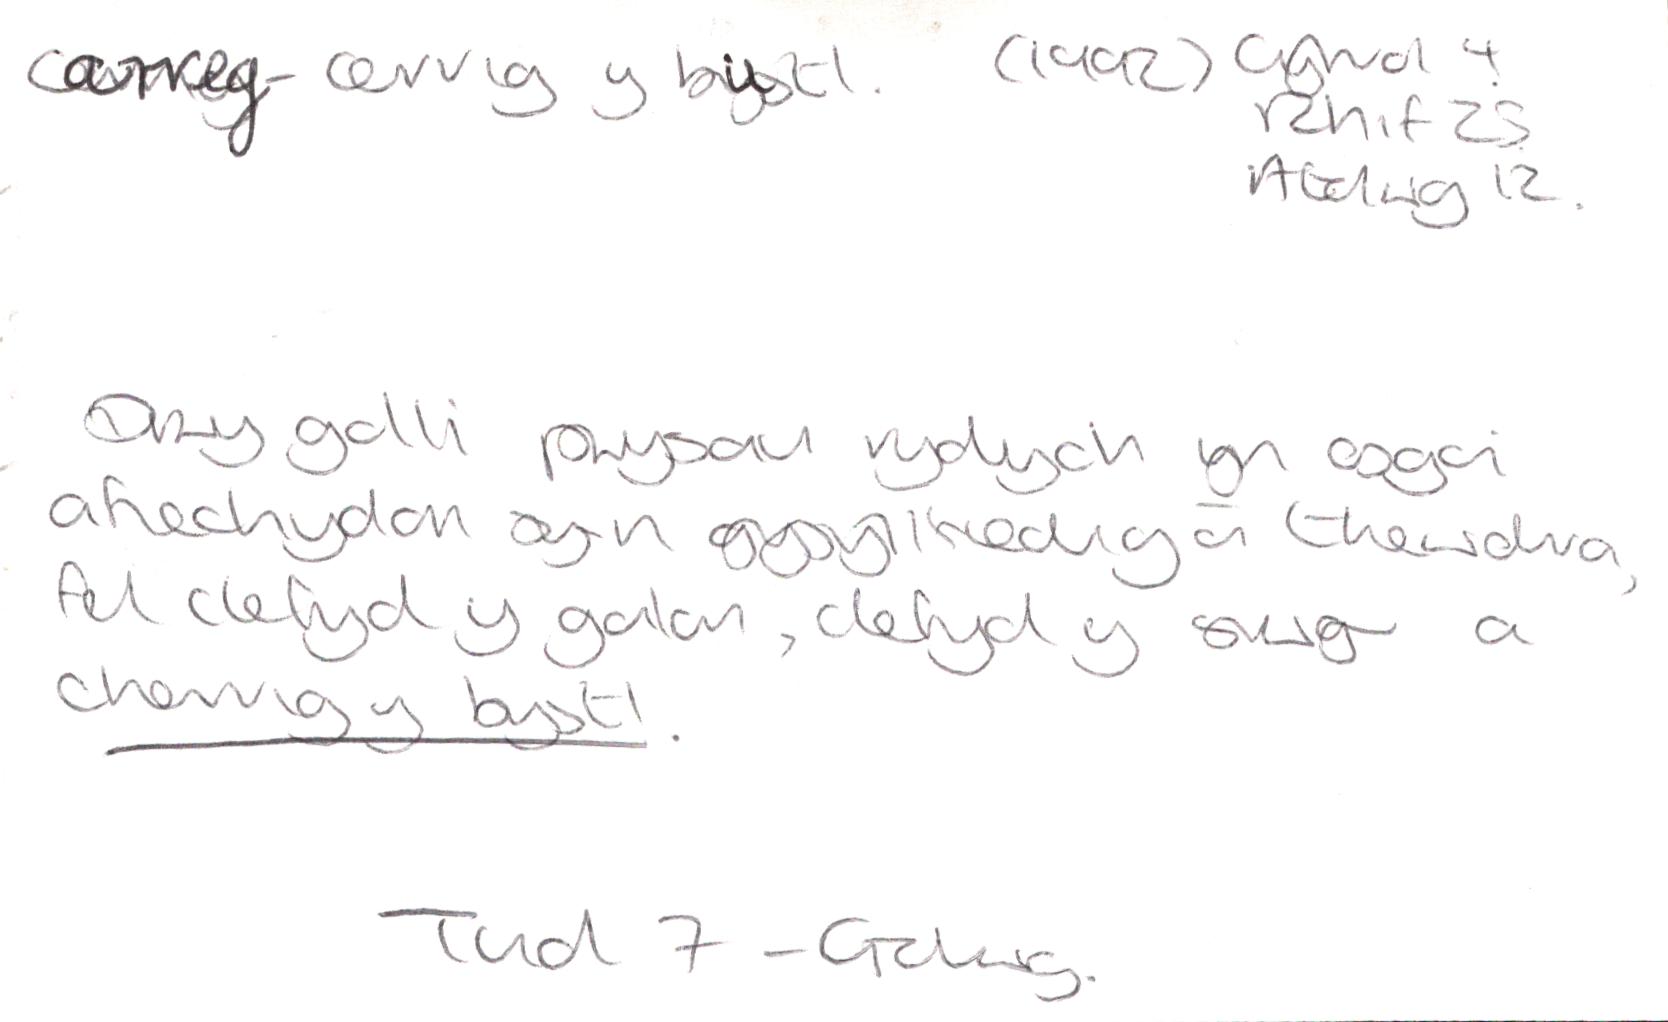 carreg - cerrig y bustl. (1992) Cyfrol 4
Rhif 25
Atodiad 12.
Drwy golli pwysau rydych yn osgoi
afiechydon sy'n gysylltiedig â thewdra,
fel clefyd y galon, clefyd y siwgr a
cherrig y bystl.
Tud 7 - Golwg.